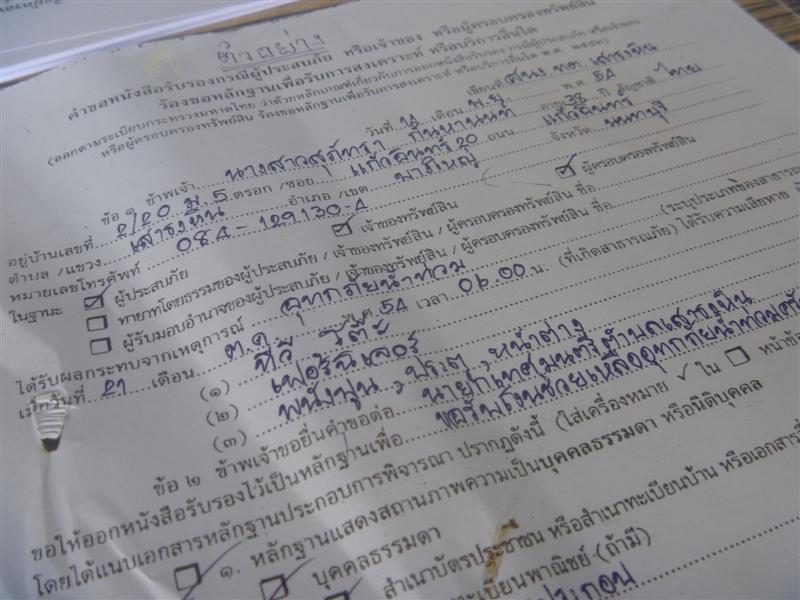 ตัวอย่าง
คำขอหนังสือรับรองกรณีผู้ประสบภัย หรือเจ้าของ หรือผู้ครอบครองทรัพย์สิน
ร้องขอหลักฐานเพื่อรับการสงเคราะห์ หรือบริการอื่นใด
(ออกตามระเบียบกระทรวงมหาดไทย ว่าด้วยหลักเกณฑ์เกี่ยวกับการออกหนังสือรับรอง กรณีผู้ประสบภัย หรือเจ้าของ
หรือผู้ครอบครองทรัพย์สิน ร้องขอหลักฐานเพื่อรับการสงเคราะห์ หรือบริการอื่นใด พ.ศ. ๒๕๕๒)
เขียนที่ ศพม. ทต. เสาธงหิน
วันที่ ๒ เดือน พ.ย พ.ศ. 54
ข้อ ๑ ข้าพเจ้า นางสาวสุภัทรา กันนานนท์ อายุ 38 ปี สัญชาติ ไทย
อยู่บ้านเลขที่ 2/20 ม.5 ตรอก/ซอย แก้วอินทร์ 20 ถนน แก้วอินทร์
ตำบล/แขวง เสาธงหิน อำเภอ/เขต บางใหญ่ จังหวัด นนทบุรี
หมายเลขโทรศัพท์ 084-129130-4
ในฐานะ ผู้ประสบภัย เจ้าของทรัพย์สิน ผู้ครอบครองทรัพย์สิน
ทายาทโดยธรรมของผู้ประสบภัย / เจ้าของทรัพย์สิน / ผู้ครอบครองทรัพย์สิน ชื่อ
ผู้รับมอบอำนาจของผู้ประสบภัย / เจ้าของทรัพย์สิน / ผู้ครอบครองทรัพย์สิน ชื่อ
ได้รับผลกระทบจากเหตุการณ์ อุทกภัยน้ำท่วม (ระบุประเภทของสาธารณ
เมื่อวันที่ 21 เดือน ต.ค พ.ศ. 54 เวลา 06.00 น. (ที่เกิดสาธารณภัย) ได้รับความเสียหาย
(๑) ทีวี
(๒) เฟอร์นิเจอร์
(๓) พนังปูน, ประตู, หน้าต่าง
ข้อ ๒ ข้าพเจ้าขอยื่นคำขอต่อ นายกเทศมนตรีตำบลเสาธงหิน
ขอให้ออกหนังสือรับรองไว้เป็นหลักฐานเพื่อ ขอรับเงินช่วยเหลืออุทกภัยน้ำท่วม
โดยได้แนบเอกสารหลักฐานประกอบการพิจารณา ปรากฏดังนี้ (ใส่เครื่องหมาย ✓ ใน หน้าข้อ
๑. หลักฐานแสดงสถานภาพความเป็นบุคคลธรรมดา หรือนิติบุคคล
บุคคลธรรมดา
สำเนาบัตรประชาชน หรือสำเนาทะเบียนบ้าน หรือเอกสาร
ทะเบียนพาณิชย์ (ถ้ามี)